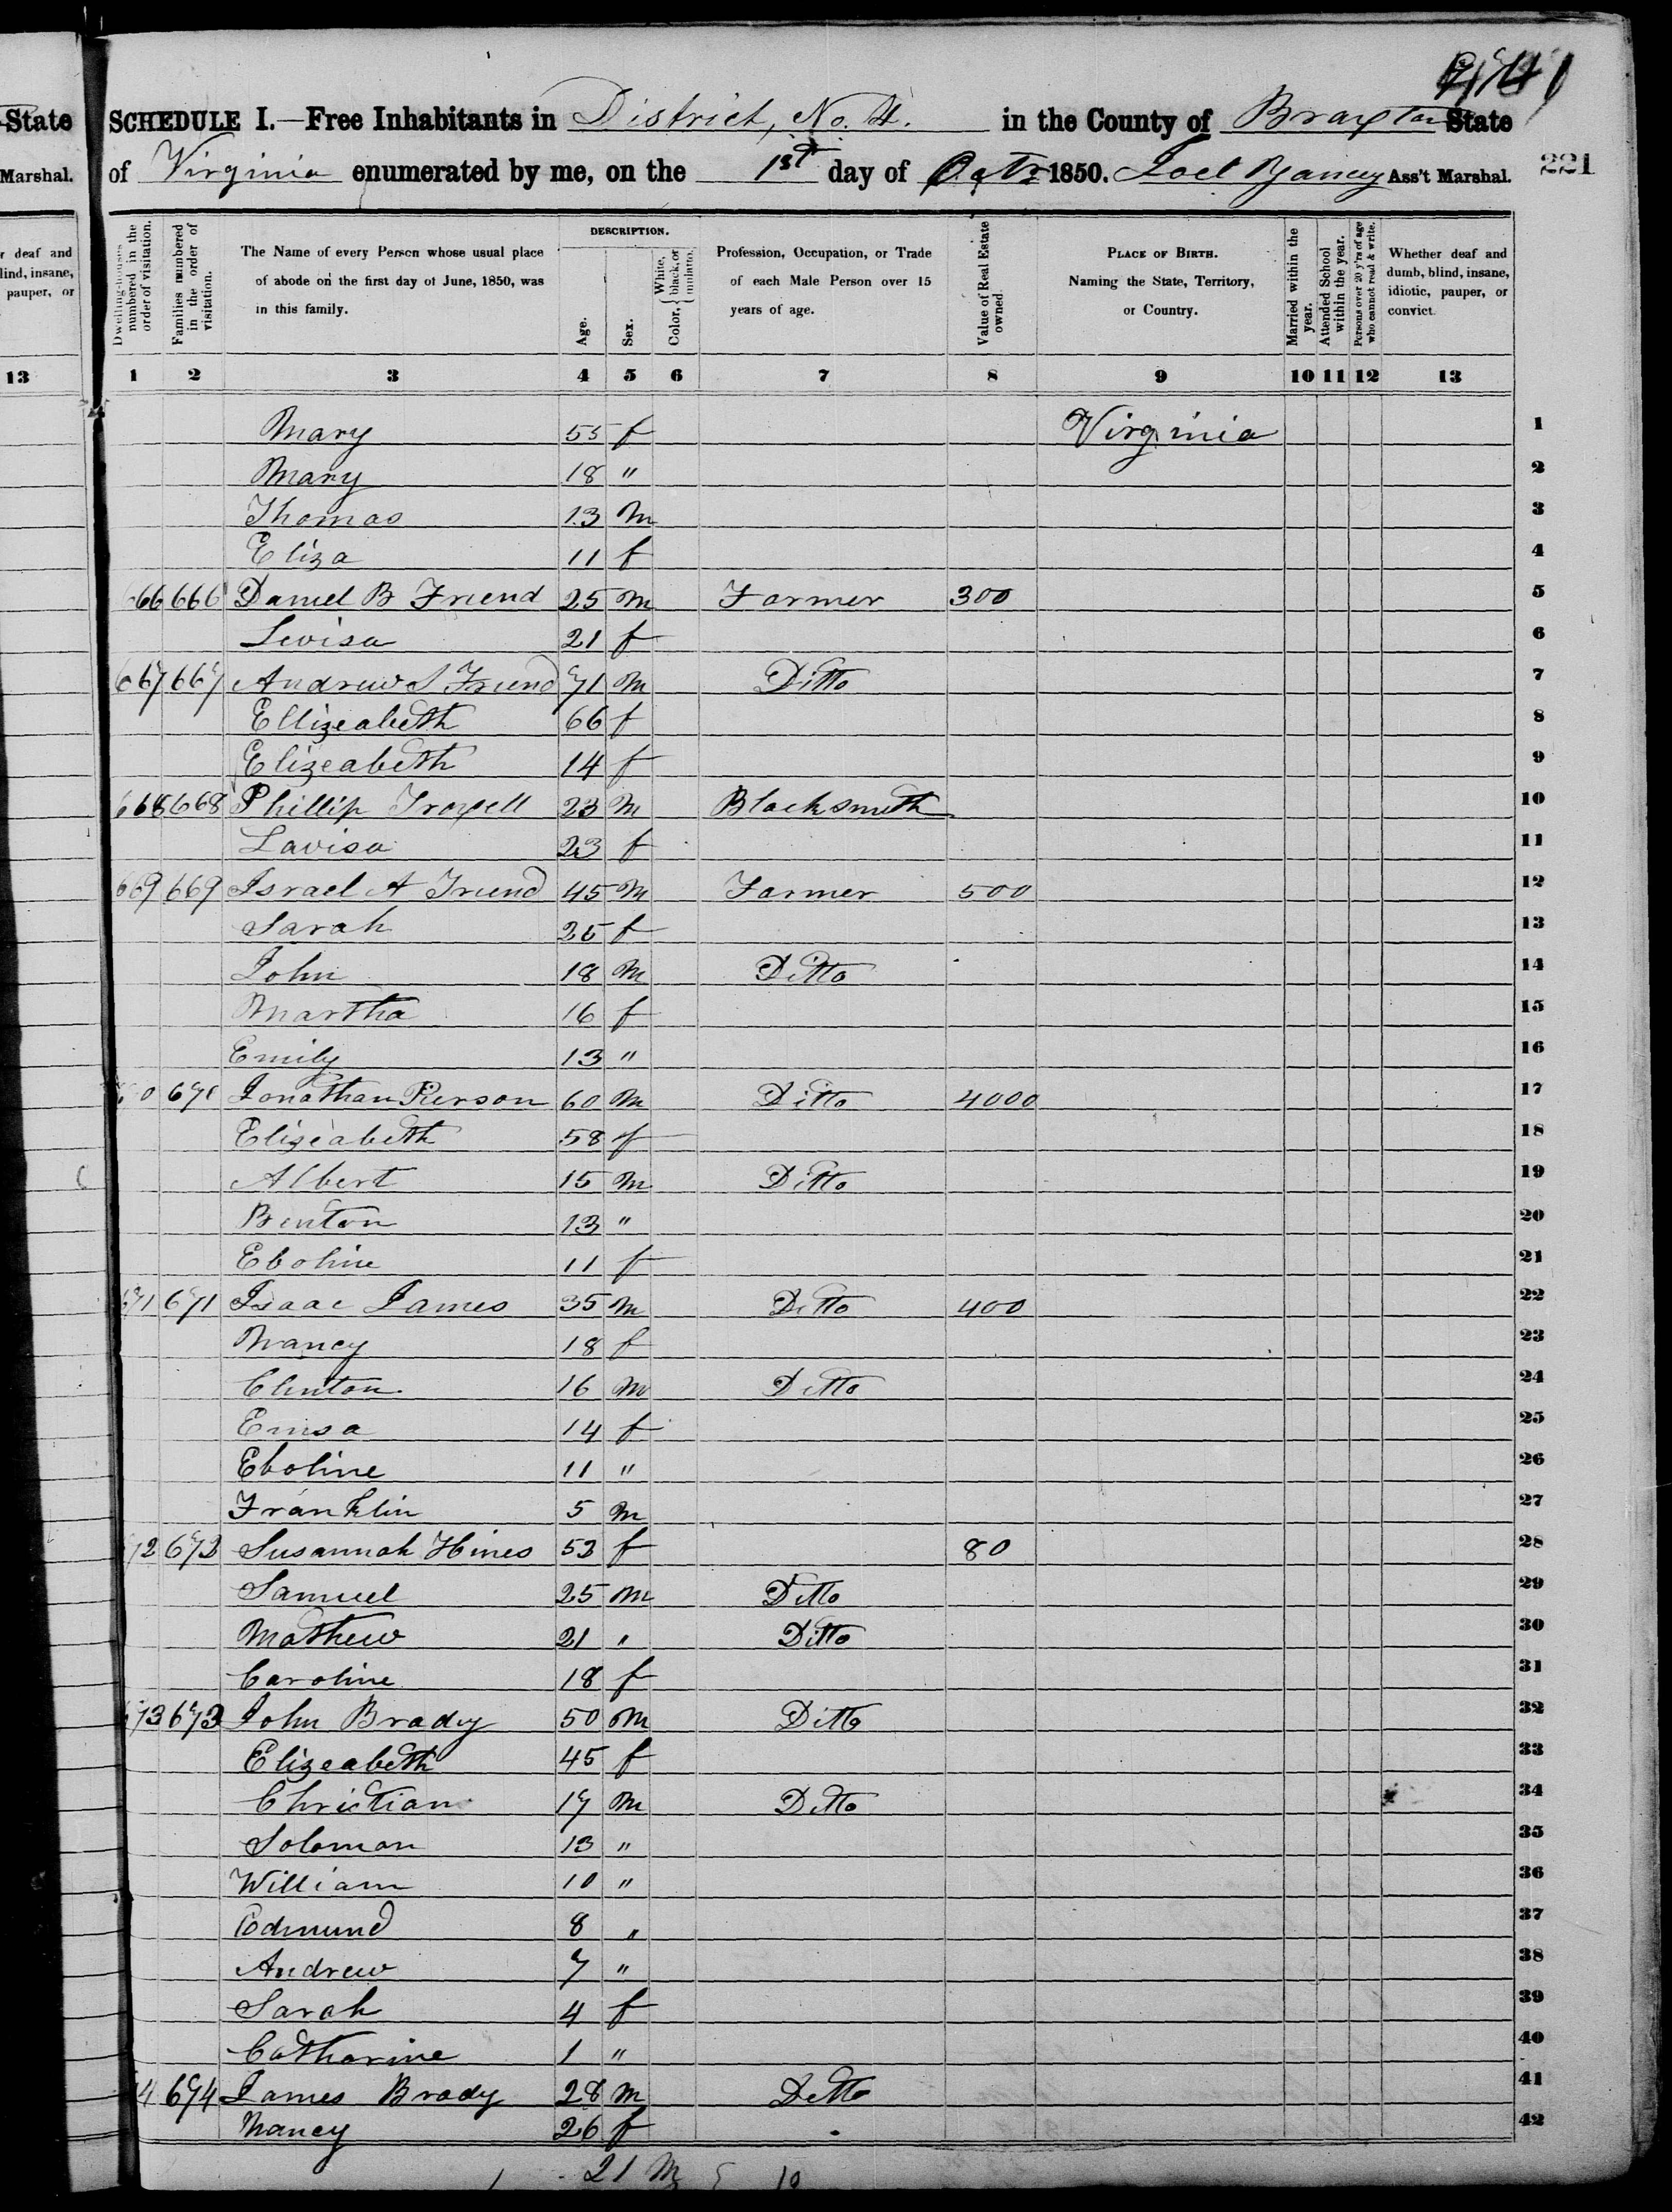 State
Marshal.
r deaf and
lind, insane,
pauper, or
13
SCHEDULE I.—Free Inhabitants in District, No. in the County of Braxton State
of Virginia enumerated by me, on the 1st day of Octr 1850. Joel Yancey Ass't Marshal.
221
Dwelling-houses numbered in the order of visitation.
Families numbered in the order of visitation.
The Name of every Person whose usual place of abode on the first day of June, 1850, was in this family.
DESCRIPTION.
Age.
Sex.
Color, { White, black, or mulatto.
Profession, Occupation, or Trade of each Male Person over 15 years of age.
Value of Real Estate owned.
PLACE OF BIRTH. Naming the State, Territory, or Country.
Married within the year.
Attended School within the year.
Persons over 20 y'rs of age who cannot read & write.
Whether deaf and dumb, blind, insane, idiotic, pauper, or convict.
1 2 3 4 5 6 7 8 9 10 11 12 13
Mary 55 f Virginia 1
Mary 18 " 2
Thomas 13 m 3
Eliza 11 f 4
666 666 Daniel B Friend 25 m Farmer 300 5
Levisa 21 f 6
667 667 Andrew S Friend 71 m Ditto 7
Ellizeabeth 66 f 8
Elizeabeth 14 f 9
668 668 Phillip Troxell 23 m Blacksmith 10
Lavisa 23 f 11
669 669 Israel A Friend 45 m Farmer 500 12
Sarah 25 f 13
John 18 m Ditto 14
Martha 16 f 15
Emily 13 " 16
670 Jonathan Pierson 60 m Ditto 4000 17
Elizeabeth 58 f 18
Albert 15 m Ditto 19
Benton 13 " 20
Eboline 11 f 21
671 671 Isaac James 35 m Ditto 400 22
Nancy 18 f 23
Clinton 16 m Ditto 24
Emsa 14 f 25
Eboline 11 " 26
Franklin 5 m 27
672 Susannah Hines 53 f 80 28
Samuel 25 m Ditto 29
Mathew 21 " Ditto 30
Caroline 18 f 31
673 673 John Brady 50 m Ditto 32
Elizeabeth 45 f 33
Christian 17 m Ditto 34
Solomon 13 " 35
William 10 " 36
Edmund 8 " 37
Andrew 7 " 38
Sarah 4 f 39
Catharine 1 " 40
4 674 James Brady 28 m Ditto 41
Nancy 26 f 42
21 M